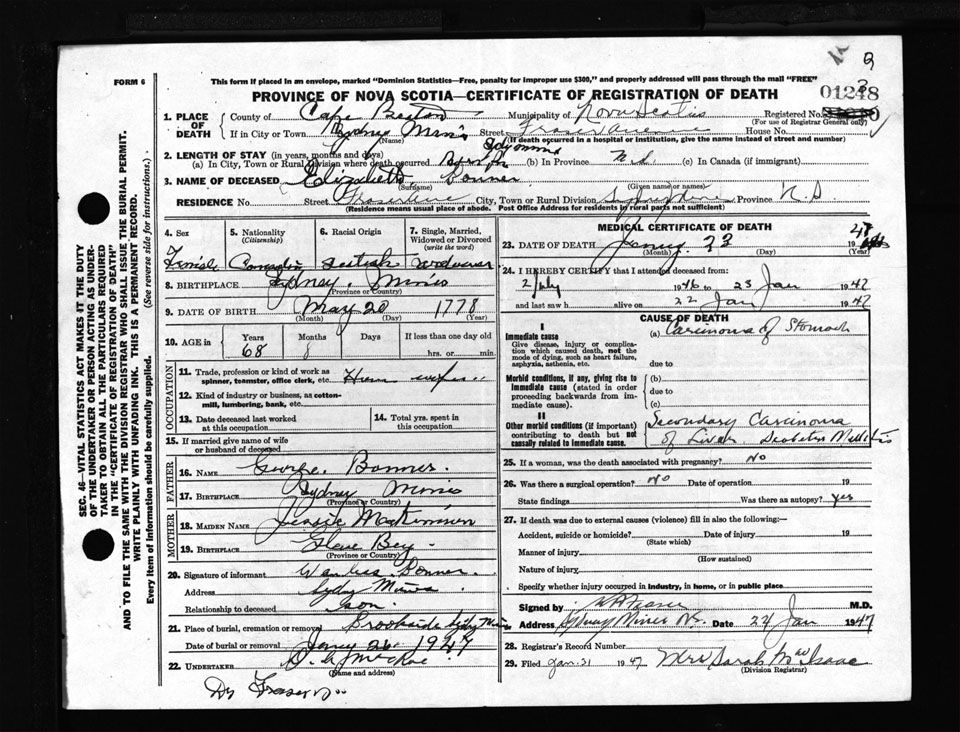 2
FORM 6
This form if placed in an envelope, marked "Dominion Statistics—Free, penalty for improper use $300," and properly addressed will pass through the mail "FREE"
01248
PROVINCE OF NOVA SCOTIA—CERTIFICATE OF REGISTRATION OF DEATH
1. PLACE OF DEATH
County of Cape Breton Municipality of Nova Scotia Registered No.
(For use of Registrar General only)
If in City or Town Sydney Mines Street Fraser Avenue House No.
(Name) (If death occurred in a hospital or institution, give the name instead of street and number)
2. LENGTH OF STAY (in years, months and days)
(a) In City, Town or Rural Division where death occurred (b) In Province N.S. (c) In Canada (if immigrant)
3. NAME OF DECEASED Elizabeth Bonner
(Surname) (Given name or names)
RESIDENCE No. Street Fraser Ave City, Town or Rural Division Sydney Mines Province N.S
(Residence means usual place of abode. Post Office Address for residents in rural parts not sufficient)
4. Sex
5. Nationality (Citizenship)
6. Racial Origin
7. Single, Married, Widowed or Divorced (write the word)
Female Canadian Scotish
8. BIRTHPLACE Sydney Mines
(Province or Country)
9. DATE OF BIRTH May 20 1778
(Month) (Day) (Year)
10. AGE in Years Months Days If less than one day old
68 8 hrs. or min.
OCCUPATION
11. Trade, profession or kind of work as spinner, teamster, office clerk, etc. House wife
12. Kind of industry or business, as cotton-mill, lumbering, bank, etc.
13. Date deceased last worked at this occupation
14. Total yrs. spent in this occupation
15. If married give name of wife or husband of deceased
FATHER
16. NAME George Bonner
17. BIRTHPLACE Sydney Mines
(Province or Country)
MOTHER
18. MAIDEN NAME Jessie MacKinnon
19. BIRTHPLACE Glace Bay
(Province or Country)
20. Signature of informant Bonner
Address Sydney Mines
Relationship to deceased Son
21. Place of burial, cremation or removal Brookside Sydney Mines
Date of burial or removal Jany 26 1947
22. UNDERTAKER
(Name and address)
Dr Fraser
MEDICAL CERTIFICATE OF DEATH
23. DATE OF DEATH Jany 23 19 47
(Month) (Day) (Year)
24. I HEREBY CERTIFY that I attended deceased from:
2 July 1946 to 23 Jan 1947
and last saw h alive on 22 Jan 1947
CAUSE OF DEATH
I
Immediate cause
Give disease, injury or complication which caused death, not the mode of dying, such as heart failure, asphyxia, asthenia, etc.
(a) Carcinoma of Stomach
due to
Morbid conditions, if any, giving rise to immediate cause (stated in order proceeding backwards from immediate cause).
(b)
due to
(c)
II
Other morbid conditions (if important) contributing to death but not causally related to immediate cause.
Secondary Carcinoma
of Liver. Diabetes Mellitis
25. If a woman, was the death associated with pregnancy? No
26. Was there a surgical operation? No Date of operation 19
State findings Was there an autopsy? yes
27. If death was due to external causes (violence) fill in also the following:—
Accident, suicide or homicide? Date of injury 19
(State which)
Manner of injury
(How sustained)
Nature of injury
Specify whether injury occurred in industry, in home, or in public place
Signed by M.D.
Address Sydney Mines NS. Date 24 Jan 1947
28. Registrar's Record Number
29. Filed Jan. 31 1947 Mrs Sarah MacIsaac
(Division Registrar)
SEC. 46—VITAL STATISTICS ACT MAKES IT THE DUTY
OF THE UNDERTAKER OR PERSON ACTING AS UNDER-
TAKER TO OBTAIN ALL THE PARTICULARS REQUIRED
IN THE "CERTIFICATE OF REGISTRATION OF DEATH"
AND TO FILE THE SAME WITH THE DIVISION REGISTRAR WHO SHALL ISSUE THE BURIAL PERMIT.
WRITE PLAINLY WITH UNFADING INK. THIS IS A PERMANENT RECORD.
Every item of information should be carefully supplied. (See reverse side for instructions.)